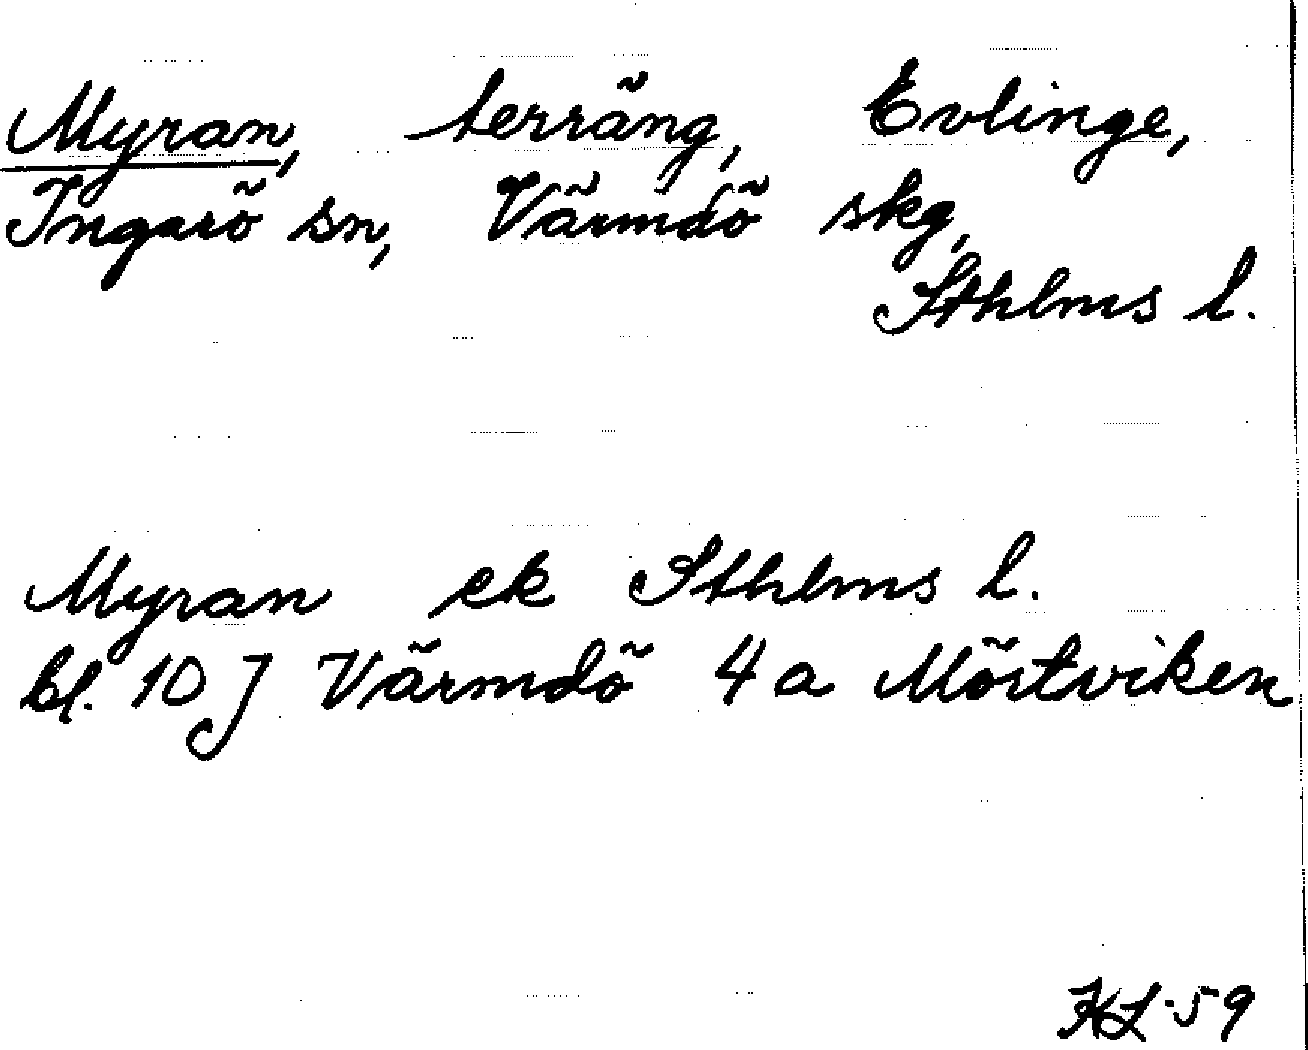 Myran, terräng, Evlinge,
Ingarö sn, Värmdö skg,
Sthlms l.
Myran ek Sthlms l.
bl. 10 J Värmdö 4 a Mörtviken
KL-59